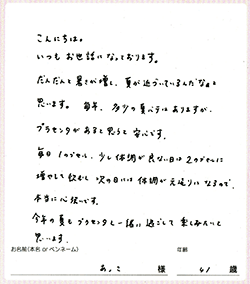 こんにちは。
いつもお世話になっております。
だんだんと暑さが増し、夏が近づいているんだなぁと
思います。毎年、多少の夏バテはありますが、
プラセンタがあると思うと安心です。
毎日1カプセル、少し体調が良ない日は2カプセルに
増やして飲むと次の日には体調が元通りになるので、
本当に心強いです。
今年の夏もプラセンタと一緒に過ごして楽しみたいと
思います。
お名前(本名 or ペンネーム) 年齢
あっこ 様 41 歳